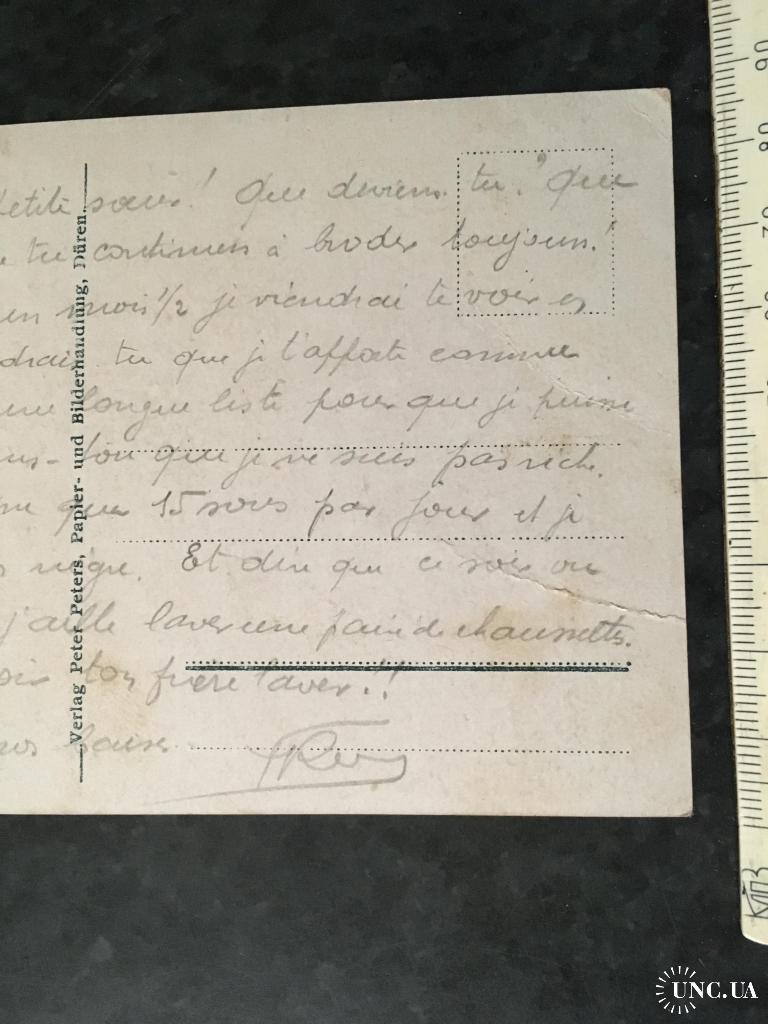 petite soeur! Que deviens tu? Que
tu continues à broder toujours!
un mois 1/2 je viendrai te voir et
drais tu que je t'apporte comme
une longue liste pour que je puisse
que je ne suis pas riche.
que 15 sous par jour et je
nègre. Et dire que ce soir ou
j'aille laver une paire de chaussettes.
ton frère laver!!
baisers
Verlag Peter Peters, Papier- und Bilderhandlung, Düren.
90
80
70
60
UNC.UA